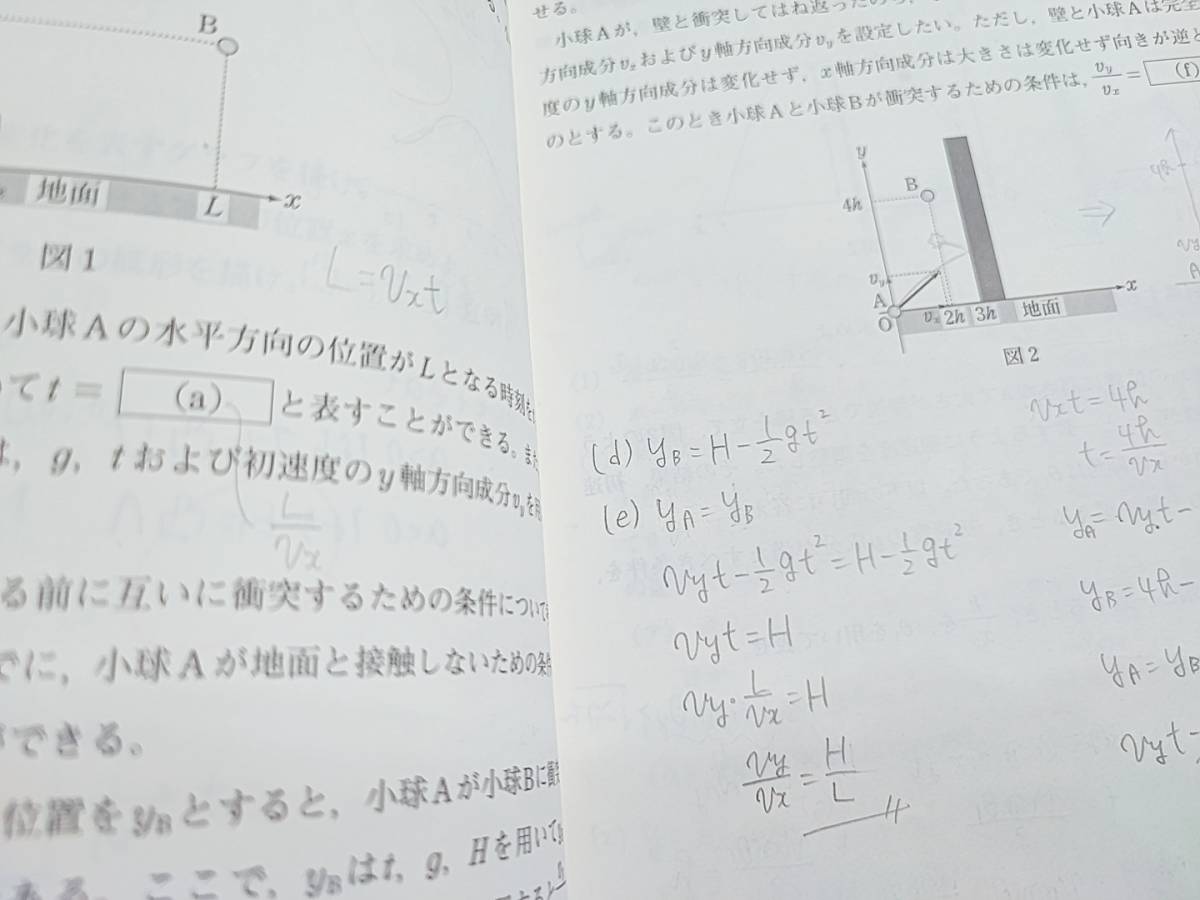 B
地面
L
x
図1
L=vxt
小球Aの水平方向の位置がLとなる時刻
てt= (a) と表すことができる。また
, g, tおよび初速度のy軸方向成分vyを用
L/vx
る前に互いに衝突するための条件について
でに, 小球Aが地面と接触しないための条件
ができる。
位置をyBとすると, 小球Aが小球Bに衝突
ここで, yBはt, g, Hを用いて
せる。
小球Aが, 壁と衝突してはね返ったのち,
方向成分vxおよびy軸方向成分vyを設定したい。ただし, 壁と小球Aは完全
度のy軸方向成分は変化せず, x軸方向成分は大きさは変化せず向きが逆と
のとする。このとき小球Aと小球Bが衝突するための条件は, vy/vx= (f)
y
4h
B
vy
A
O
vx 2h 3h 地面
x
図2
⇒
4h
vy
A
(d) yB=H-1/2gt²
(e) yA=yB
vyt-1/2gt²=H-1/2gt²
vyt=H
vy・L/vx=H
vy/vx=H/L
vxt=4h
t=4h/vx
yA=vyt-
yB=4h-
yA=yB
vyt-